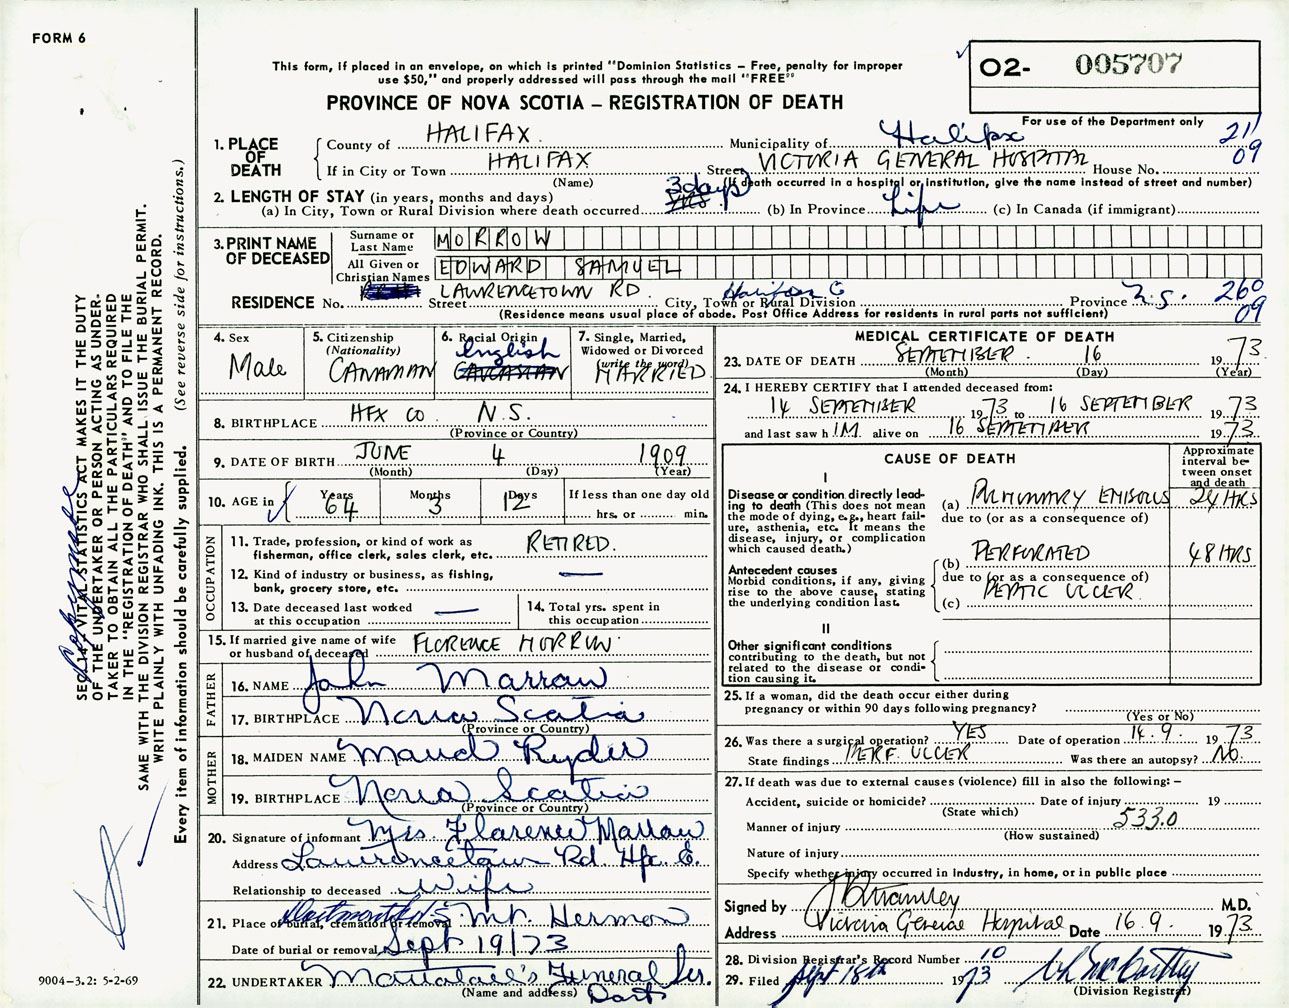 FORM 6
This form, if placed in an envelope, on which is printed "Dominion Statistics – Free, penalty for improper
use $50," and properly addressed will pass through the mail "FREE"
PROVINCE OF NOVA SCOTIA – REGISTRATION OF DEATH
O2- 005707
For use of the Department only
211
09
1. PLACE OF DEATH
County of HALIFAX Municipality of Halifax
If in City or Town HALIFAX Street VICTORIA GENERAL HOSPITAL House No.
(Name) (If death occurred in a hospital or institution, give the name instead of street and number)
2. LENGTH OF STAY (in years, months and days)
(a) In City, Town or Rural Division where death occurred 3 days (b) In Province Life (c) In Canada (if immigrant)
3. PRINT NAME OF DECEASED
Surname or Last Name MORROW
All Given or Christian Names EDWARD SAMUEL
RESIDENCE No. Street LAWRENCETOWN RD. City, Town or Rural Division Halifax C Province N.S. 260
09
(Residence means usual place of abode. Post Office Address for residents in rural parts not sufficient)
4. Sex Male
5. Citizenship (Nationality) CANADIAN
6. Racial Origin English CAUCASIAN
7. Single, Married, Widowed or Divorced (write the word) MARRIED
8. BIRTHPLACE HFX CO. N.S.
(Province or Country)
9. DATE OF BIRTH JUNE 4 1909
(Month) (Day) (Year)
10. AGE in Years 64 Months 3 Days 12 If less than one day old
hrs. or min.
OCCUPATION
11. Trade, profession, or kind of work as fisherman, office clerk, sales clerk, etc. RETIRED.
12. Kind of industry or business, as fishing, bank, grocery store, etc. —
13. Date deceased last worked at this occupation —
14. Total yrs. spent in this occupation
15. If married give name of wife or husband of deceased FLORENCE MORROW
FATHER
16. NAME John Morrow
17. BIRTHPLACE Nova Scotia
(Province or Country)
MOTHER
18. MAIDEN NAME Maud Ryder
19. BIRTHPLACE Nova Scotia
(Province or Country)
20. Signature of informant Mrs. Florence Morrow
Address Lawrencetown Rd. Hfx. C.
Relationship to deceased Wife
21. Place of burial, cremation or removal Dartmouth N.S. Mt. Hermon
Date of burial or removal Sept 19/73
22. UNDERTAKER Funeral Ser.
(Name and address) Dart
MEDICAL CERTIFICATE OF DEATH
23. DATE OF DEATH SEPTEMBER 16 1973
(Month) (Day) (Year)
24. I HEREBY CERTIFY that I attended deceased from:
14 SEPTEMBER 1973 to 16 SEPTEMBER 1973
and last saw h IM alive on 16 SEPTEMBER 1973.
CAUSE OF DEATH
Approximate interval between onset and death
I
Disease or condition directly leading to death (This does not mean the mode of dying, e.g., heart failure, asthenia, etc. It means the disease, injury, or complication which caused death.)
(a) PULMONARY EMBOLUS 24 HRS
due to (or as a consequence of)
Antecedent causes
Morbid conditions, if any, giving rise to the above cause, stating the underlying condition last.
(b) PERFORATED 48 HRS
due to (or as a consequence of)
(c) PEPTIC ULCER
II
Other significant conditions
contributing to the death, but not related to the disease or condition causing it.
25. If a woman, did the death occur either during pregnancy or within 90 days following pregnancy?
(Yes or No)
26. Was there a surgical operation? YES Date of operation 14.9. 1973
State findings PERF. ULCER Was there an autopsy? NO.
27. If death was due to external causes (violence) fill in also the following: –
Accident, suicide or homicide? Date of injury 19
(State which)
Manner of injury 533.0
(How sustained)
Nature of injury
Specify whether injury occurred in industry, in home, or in public place
Signed by M.D.
Address Victoria General Hospital Date 16.9. 1973
28. Division Registrar's Record Number 10
29. Filed Sept 18th 1973
(Division Registrar)
SEC. 14, VITAL STATISTICS ACT MAKES IT THE DUTY
OF THE UNDERTAKER OR PERSON ACTING AS UNDER-
TAKER TO OBTAIN ALL THE PARTICULARS REQUIRED
IN THE "REGISTRATION OF DEATH" AND TO FILE THE
SAME WITH THE DIVISION REGISTRAR WHO SHALL ISSUE THE BURIAL PERMIT.
WRITE PLAINLY WITH UNFADING INK. THIS IS A PERMANENT RECORD.
Every item of information should be carefully supplied. (See reverse side for instructions.)
9004-3.2: 5-2-69